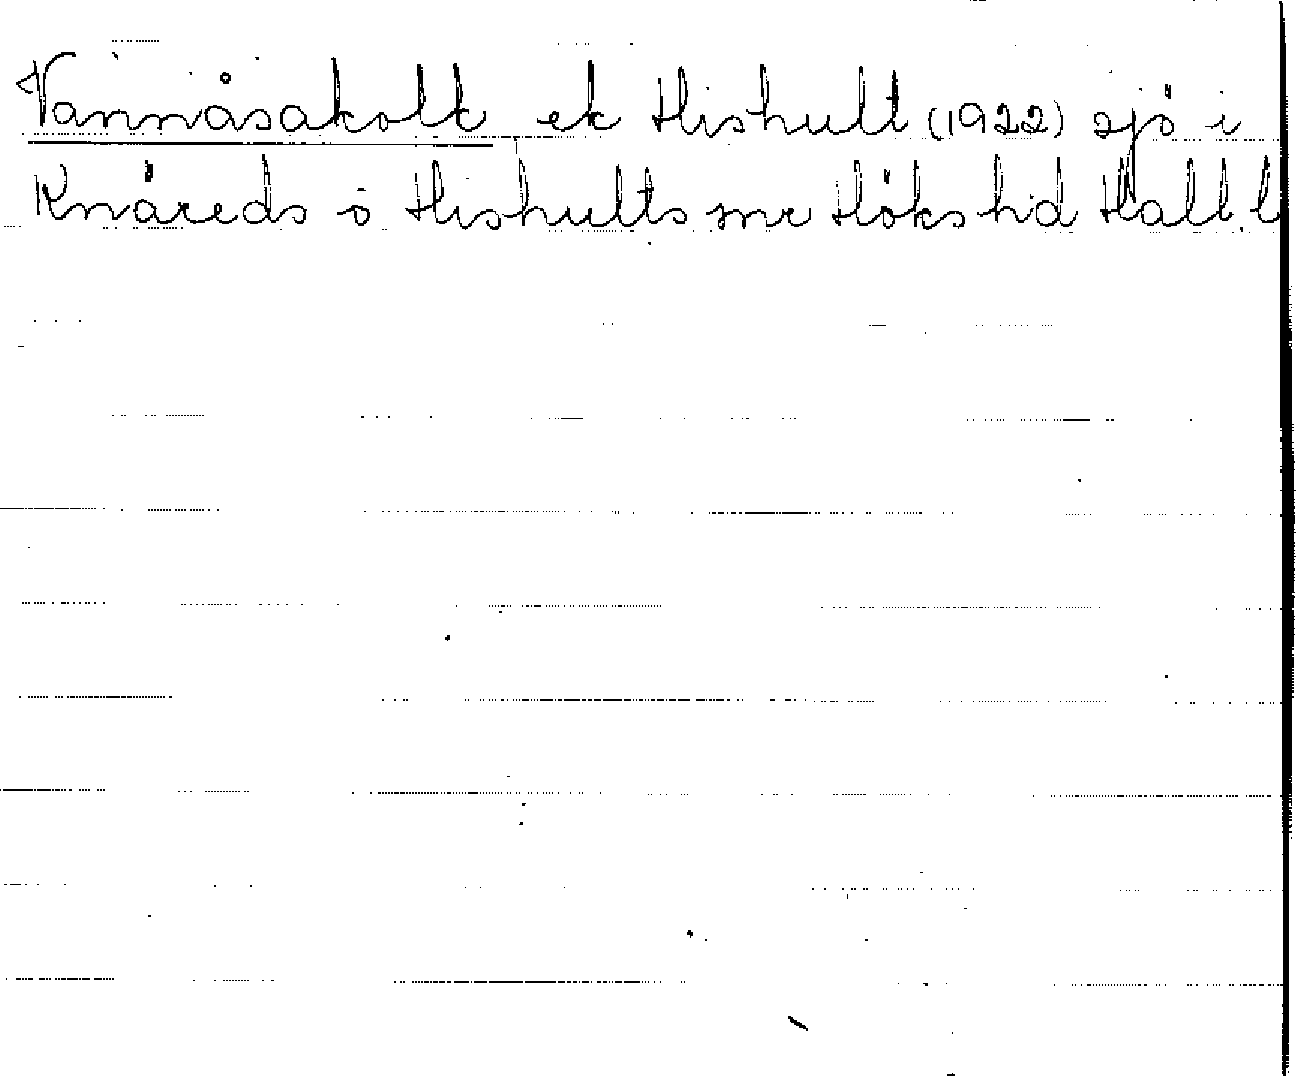 Vännåsakolk ek Hishult (1922) sjö i
Knäreds o Hishults snr Höks hd Hall l